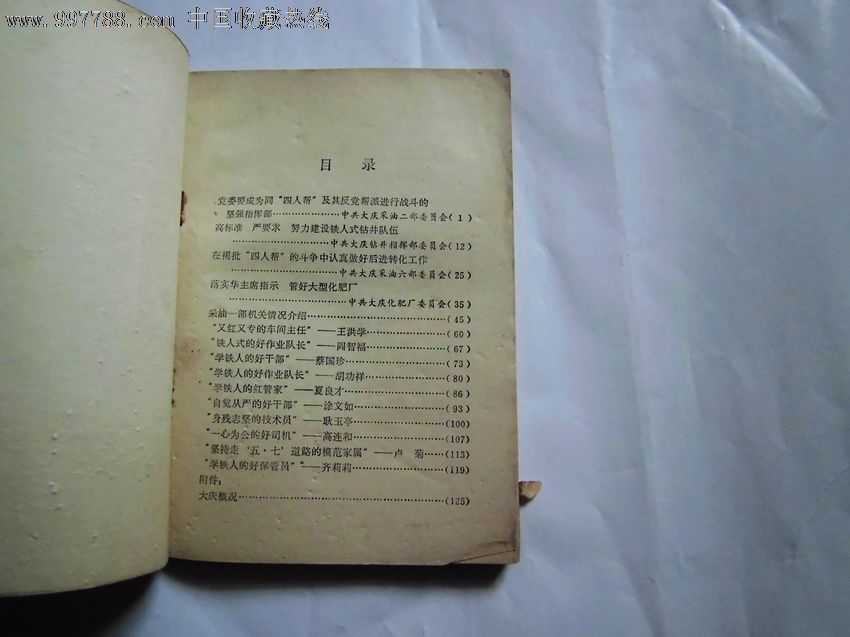 www.997788.com 中国收藏热线
目 录
党委要成为同“四人帮”及其反党帮派进行战斗的
坚强指挥部……………中共大庆采油二部委员会(1)
高标准 严要求 努力建设铁人式钻井队伍
……………………中共大庆钻井指挥部委员会(12)
在揭批“四人帮”的斗争中认真做好后进转化工作
……………………中共大庆采油六部委员会(25)
落实华主席指示 管好大型化肥厂
……………………中共大庆化肥厂委员会(35)
采油一部机关情况介绍……………………(45)
“又红又专的车间主任”——王洪学……………(60)
“铁人式的好作业队长”——阎智福……………(67)
“学铁人的好干部”——蔡国珍…………………(73)
“学铁人的好作业队长”——胡功祥……………(80)
“学铁人的红管家”——夏良才…………………(86)
“自觉从严的好干部”——涂文如………………(93)
“身残志坚的技术员”——耿玉亭………………(100)
“一心为公的好司机”——高连和………………(107)
“坚持走‘五·七’道路的模范家属”——卢 菊……(113)
“学铁人的好保管员”——齐莉莉………………(119)
附件：
大庆概况……………………………………(125)